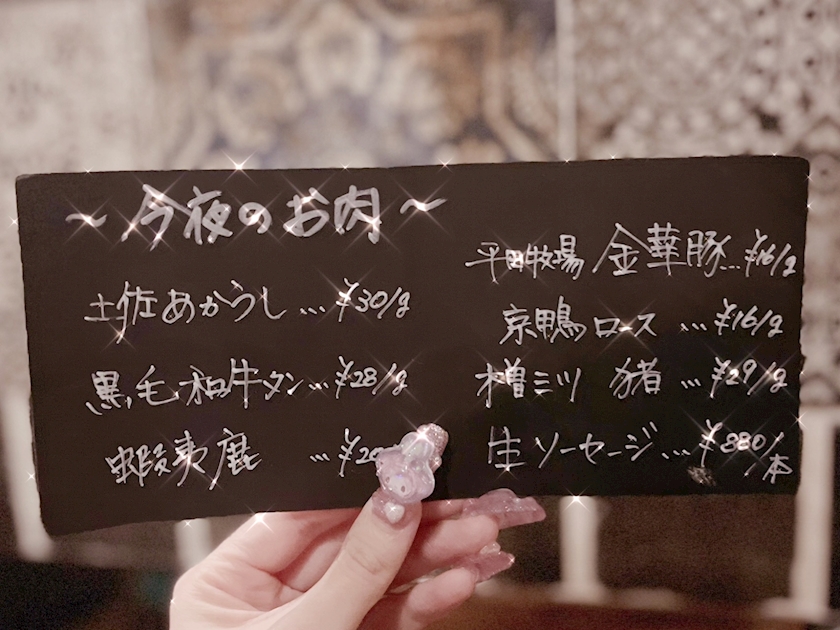 ～今夜のお肉～
土佐あかうし…¥30/g
黒毛和牛タン…¥28/g
蝦夷鹿…¥20
平田牧場 金華豚…¥16/g
京鴨ロース…¥16/g
木曽ミツ 猪…¥29/g
生ソーセージ…¥880/本